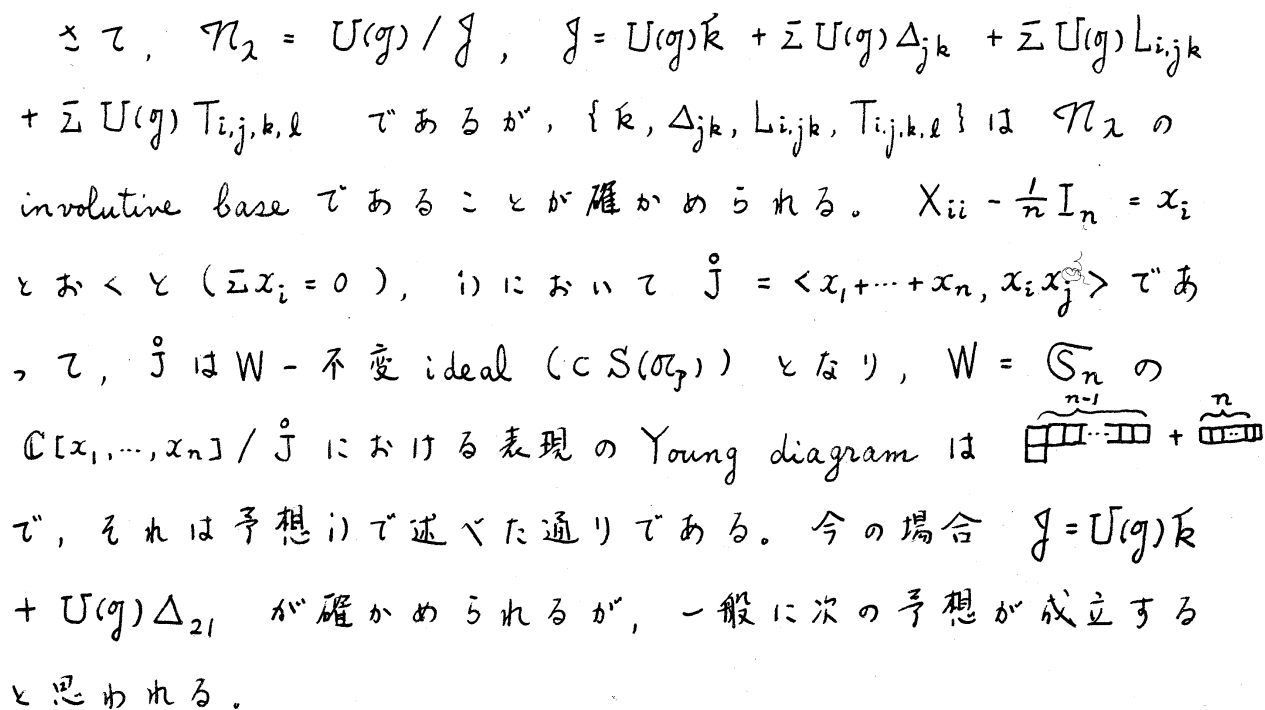 さて, 𝔫_λ = U(g) / J , J = U(g)k̄ + Σ U(g)Δ_{jk} + Σ U(g)L_{i,jk}
+ Σ U(g)T_{i,j,k,l} であるが, {k̄, Δ_{jk}, L_{i,jk}, T_{i,j,k,l}} は 𝔫_λ の
involutive base であることが確かめられる。 X_{ii} - 1/n I_n = x_i
とおくと (Σx_i = 0), i) において J̊ = <x_1+⋯+x_n, x_i x_j> であ
って, J̊ は W - 不変 ideal (⊂ S(𝔞_p)) となり, W = 𝔖_n の
ℂ[x_1,⋯,x_n] / J̊ における表現の Young diagram は n-1 + n
で, それは予想 i) で述べた通りである。今の場合 J = U(g)k̄
+ U(g)Δ_{21} が確かめられるが, 一般に次の予想が成立する
と思われる。